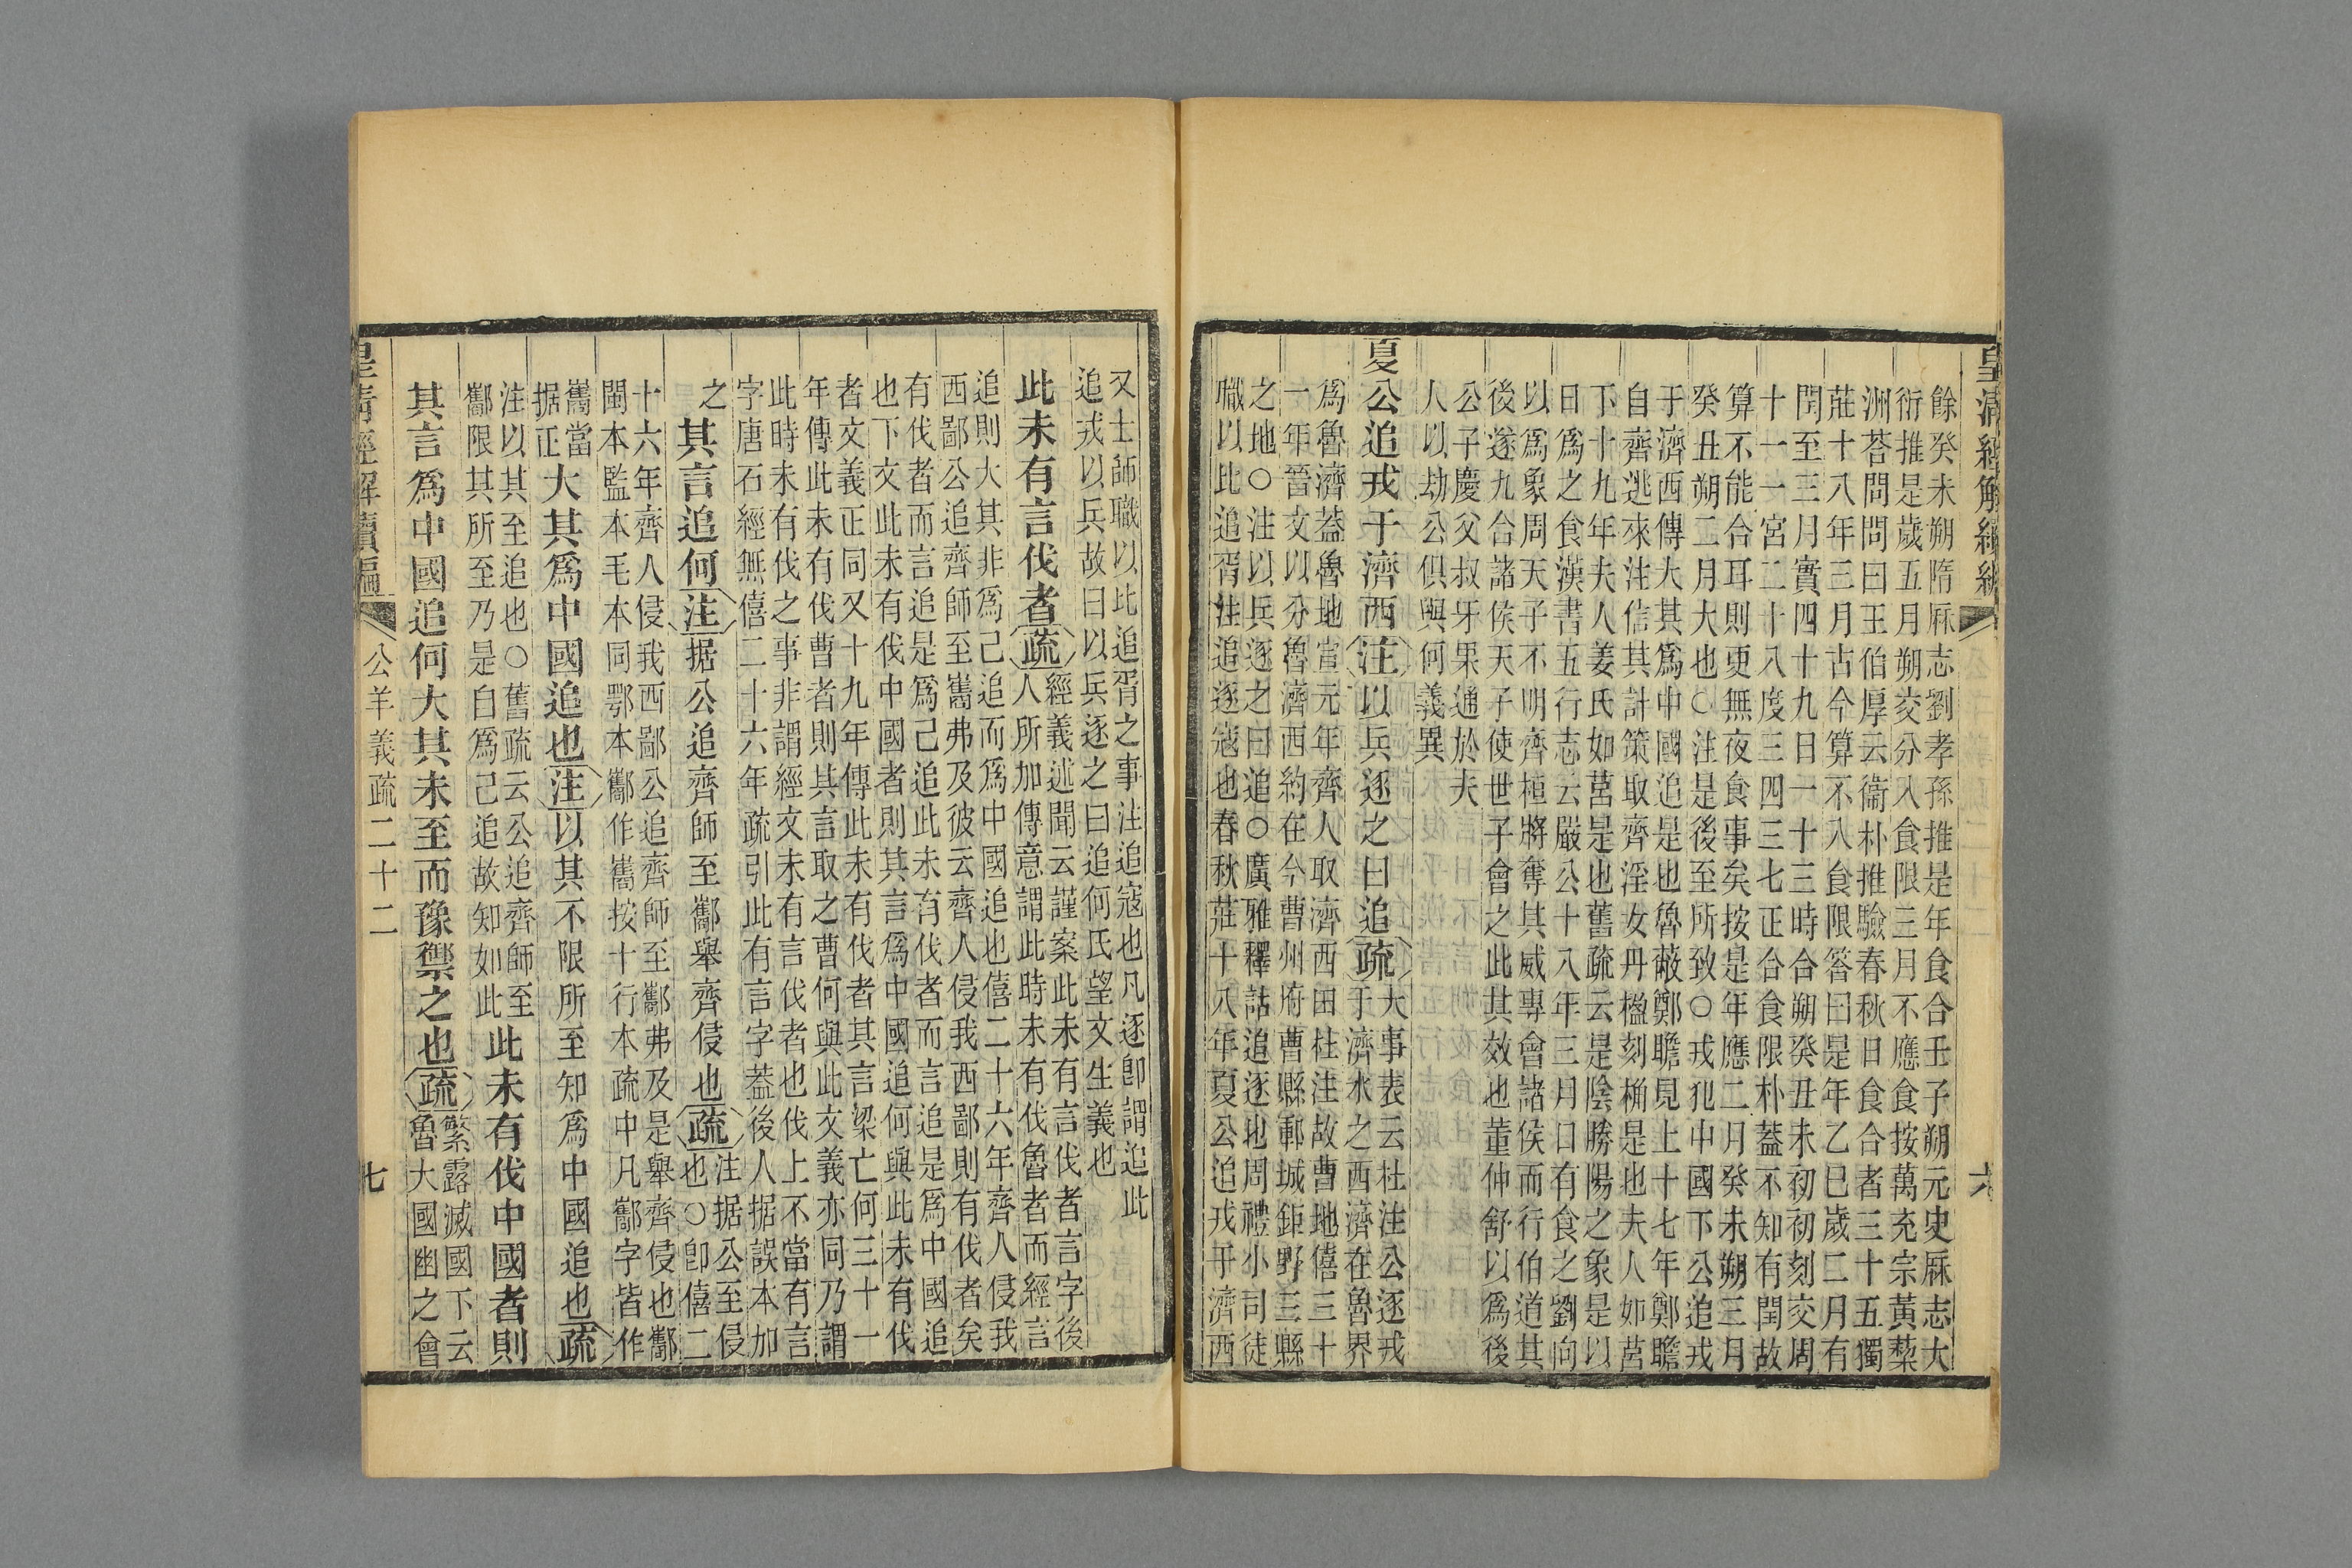 皇清經解續編
六
餘癸未朔隋厤志劉孝孫推是年食合壬子朔元史厤志大
衍推是歲五月朔交分入食限三月不應食按萬充宗黃棃
洲荅問問曰王伯厚云衞朴推驗春秋日食合者三十五獨
莊十八年三月古今算不入食限答曰是年乙巳歲二月有
閏至三月實四十九日一十三時合朔癸丑未初初刻交周
十一宮二十八度三四三七正合食限朴葢不知有閏故
算不能合耳則更無夜食事矣按是年應二月癸未朔三月
癸丑朔二月大也○注是後至所致○戎犯中國下公追戎
于濟西傳大其爲中國追是也魯蔽鄭瞻見上十七年鄭瞻
自齊逃來注信其計策取齊淫女丹楹刻桷是也夫人如莒
下十九年夫人姜氏如莒是也舊疏云是陰勝陽之象是以
日爲之食漢書五行志云嚴公十八年三月日有食之劉向
以爲象周天子不明齊桓將奪其威專會諸侯而行伯道其
後遂九合諸侯天子使世子會之此其效也董仲舒以爲後
公子慶父叔牙果通於夫
人以劫公俱與何義異
夏公追戎于濟西注以兵逐之曰追疏
大事表云杜注公逐戎
于濟水之西濟在魯界
爲魯濟葢魯地宣元年齊人取濟西田杜注故曹地僖三十
一年晉文以分魯濟西約在今曹州府曹縣鄆城鉅野三縣
之地○注以兵逐之曰追○廣雅釋詁追逐也周禮小司徒
職以此追胥注追逐寇也春秋莊十八年夏公追戎于濟西
又士師職以此追胥之事注追寇也凡逐卽謂追此
追戎以兵故曰以兵逐之曰追何氏望文生義也
此未有言伐者疏
經義述聞云謹案此未有言伐者言字後
人所加傳意謂此時未有伐魯者而經言
追則大其非爲己追而爲中國追也僖二十六年齊人侵我
西鄙公追齊師至巂弗及彼云齊人侵我西鄙則有伐者矣
有伐者而言追是爲己追此未有伐者而言追是爲中國追
也下文此未有伐中國者則其言爲中國追何與此未有伐
者文義正同又十九年傳此未有伐者其言梁亡何三十一
年傳此未有伐曹者則其言取之曹何與此文義亦同乃謂
此時未有伐之事非謂經文未有言伐者也伐上不當有言
字唐石經無僖二十六年疏引此有言字葢後人据誤本加
之
其言追何注据公追齊師至酅舉齊侵也疏
注据公至侵
也○卽僖二
十六年齊人侵我西鄙公追齊師至酅弗及是舉齊侵也酅
閩本監本毛本同鄂本酅作巂按十行本疏中凡酅字皆作
巂當
据正
大其爲中國追也注以其不限所至知爲中國追也疏
注以其至追也○舊疏云公追齊師至
酅限其所至乃是自爲己追故知如此
此未有伐中國者則
其言爲中國追何大其未至而豫禦之也疏
繁露滅國下云
魯大國幽之會
皇清經解續編
公羊義疏二十二
七